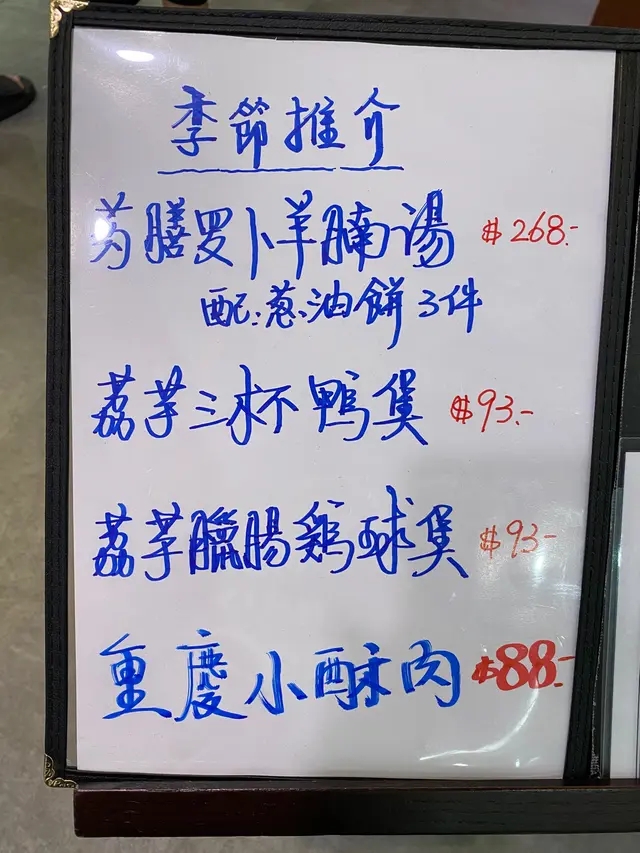 季節推介
药膳罗卜羊腩湯 $268.-
配:葱油餅3件
荔芋三杯鴨煲 $93.-
荔芋臘腸鷄球煲 $93-
重慶小酥肉 $88.-